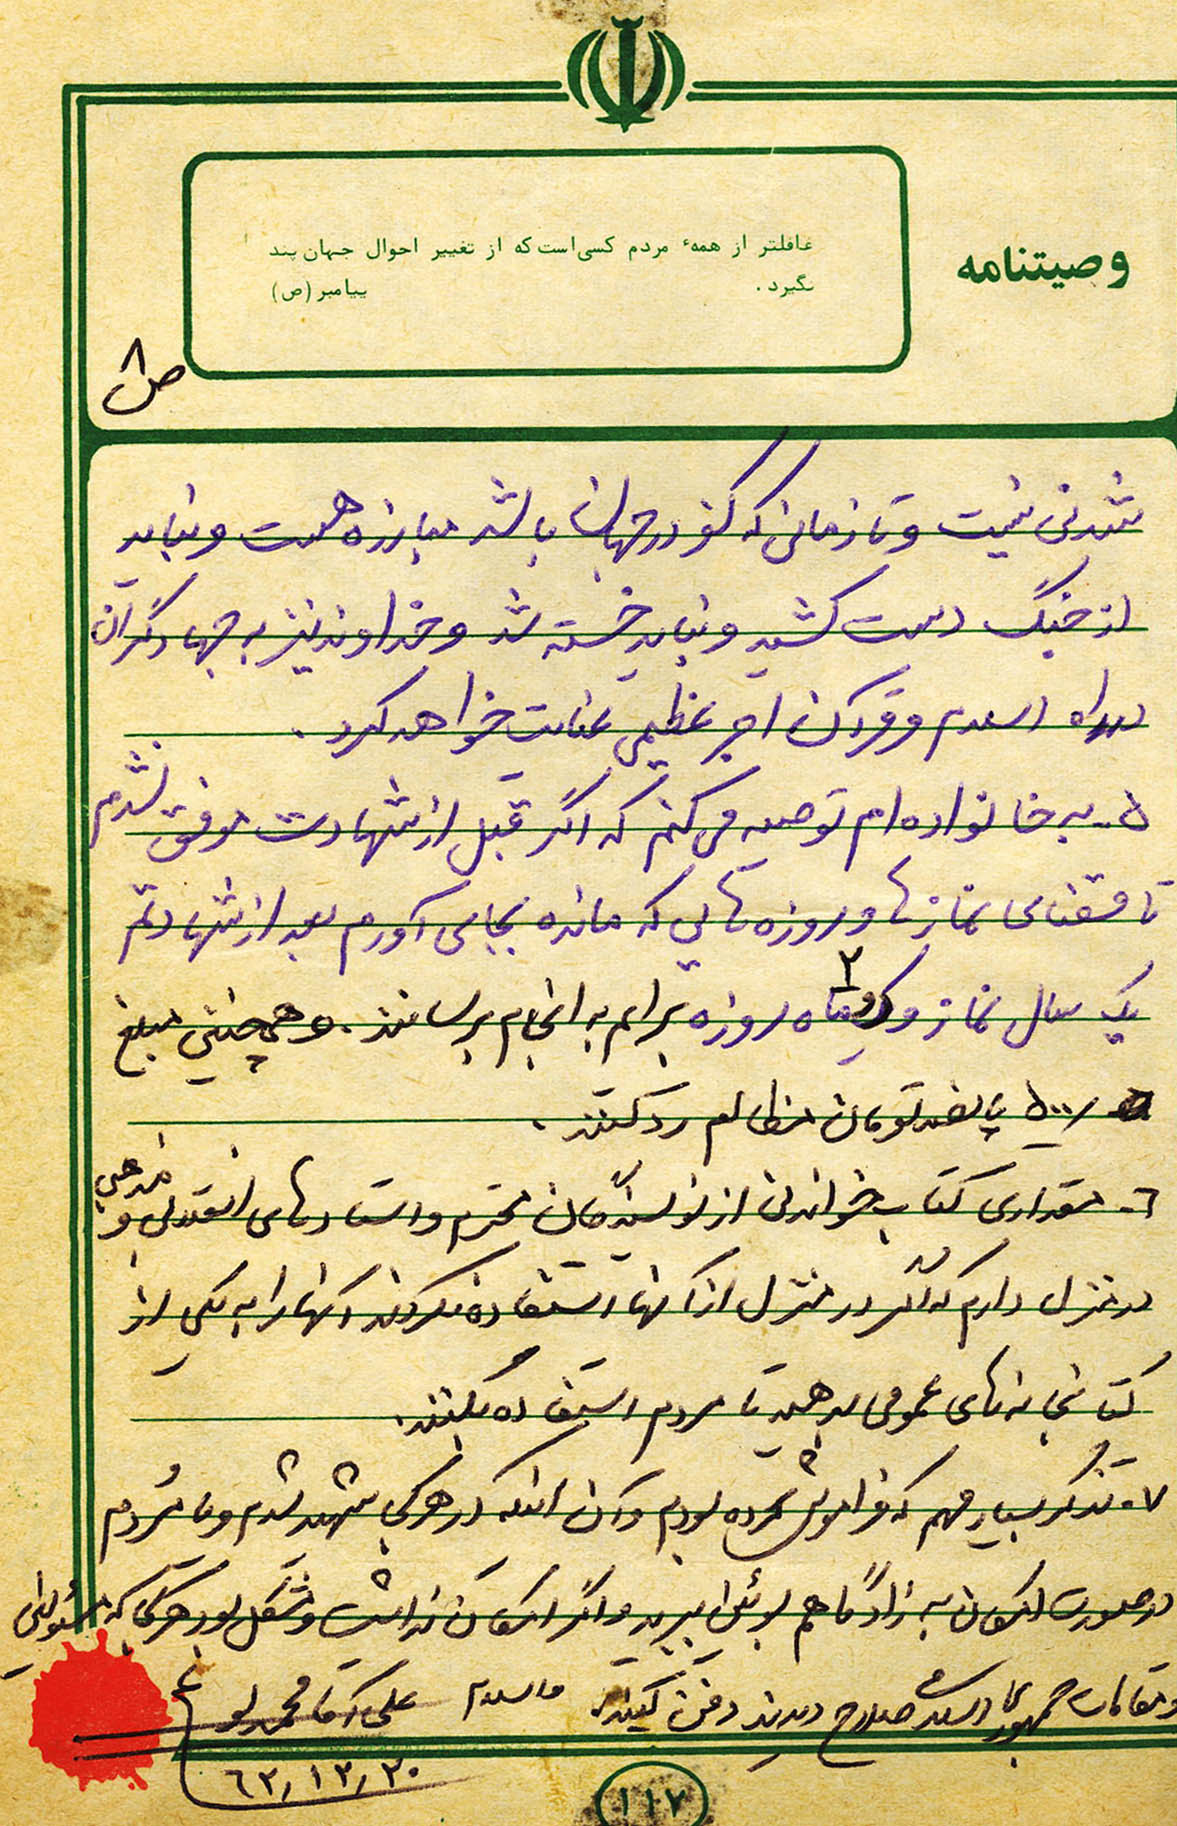 وصیتنامه
غافلتر از همهٔ مردم کسی‌است که از تغییر احوال جهان پند
نگیرد.
پیامبر (ص)
ص ۸
شدنی نیست و تا زمانی که کفر در جهان باشد مبارزه هست و نباید
از جنگ دست کشید و نباید خسته شد و خداوند نیز به جهادگران
در راه اسلام و قرآن اجر عظیمی عنایت خواهد کرد.
۵- به خانواده‌ام توصیه می‌کنم که اگر قبل از شهادت موفق نشدم
تا قضای نمازها و روزه‌هایی که مانده بجای آورم بعد از شهادتم
یک سال نماز و دو ۲ ماه روزه برایم به انجام برسانند. و همچنین مبلغ
۵۰۰ پانصد تومان مظالم رد کنند.
۶- مقداری کتاب خواندنی از نویسندگان محترم و استادهای انقلابی و مذهبی
در منزل دارم که اگر در منزل از آنها استفاده نکردند آنها را به یکی از
کتابخانه‌های عمومی بدهید تا مردم استفاده بکنند.
۷- تذکر بسیار مهم که فراموش کرده بودم و آن اینکه در هر کجا شهید شدم و یا مُردم
در صورت امکان به زادگاهم ببرید و اگر امکان نداشت و مشکل بود هر کجا که مسئولین
و مقامات جمهوری اسلامی صلاح دیدند دفن کنید. والسلام
علی آقامحمدلو
۶۲/۱۲/۲۰
۱۱۷